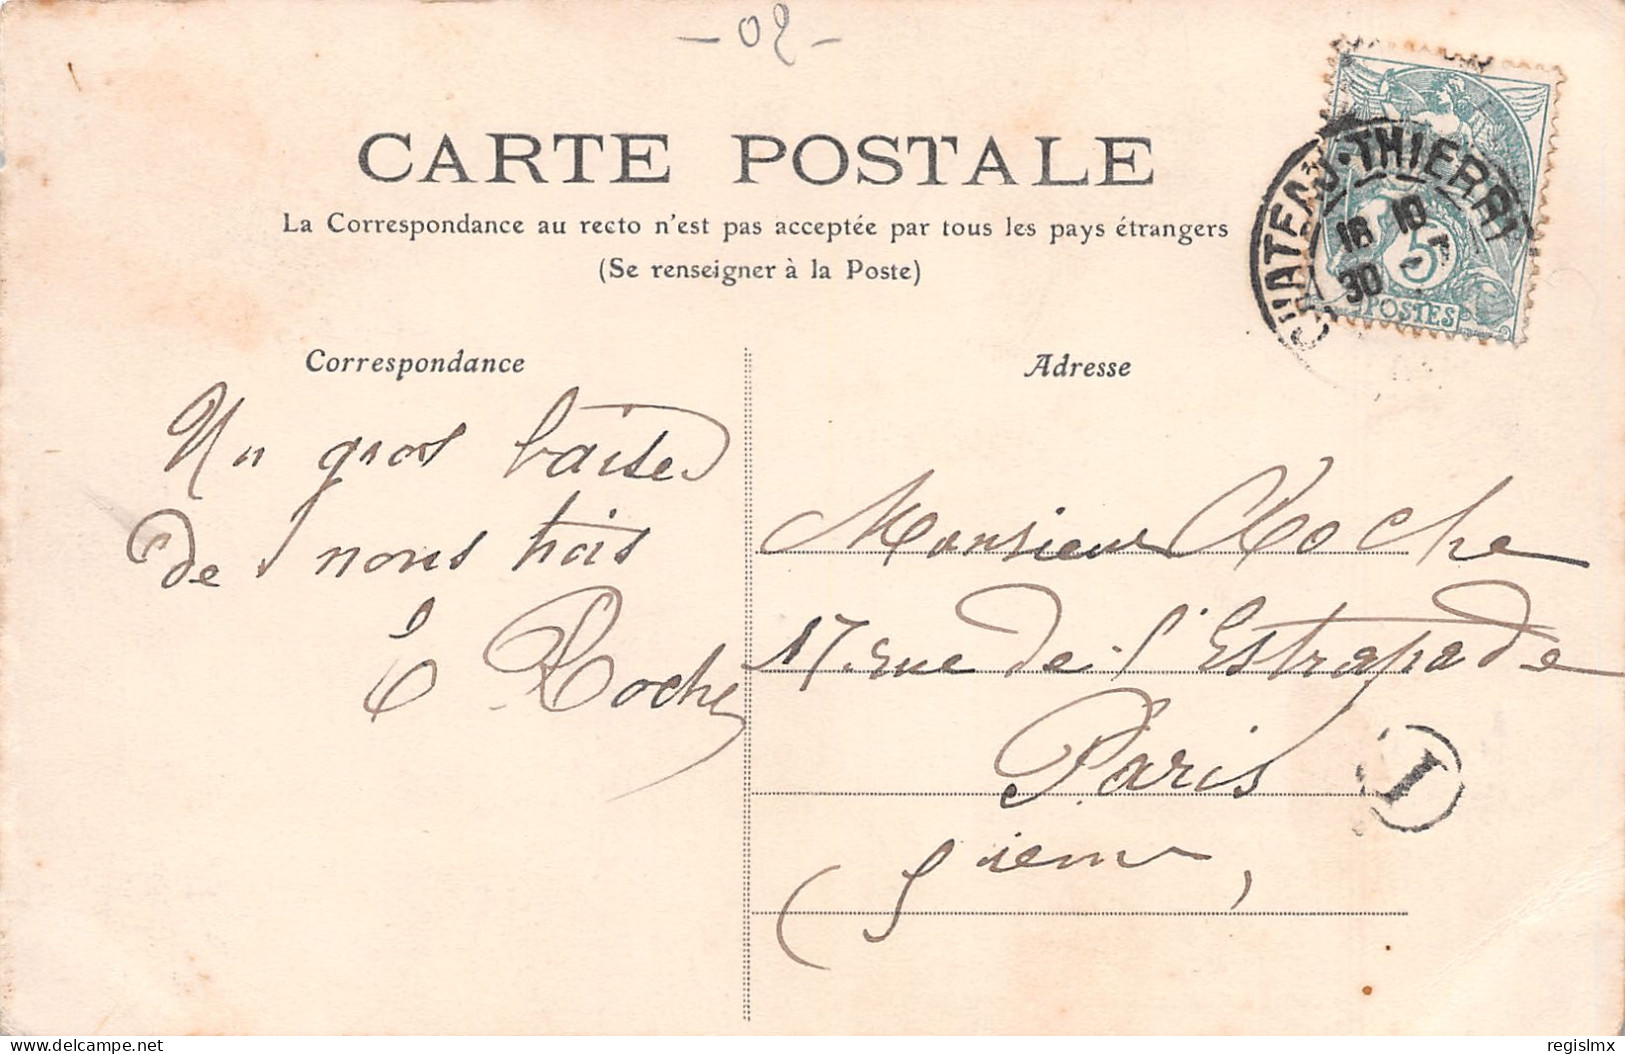 - 02 -
CARTE POSTALE
La Correspondance au recto n'est pas acceptée par tous les pays étrangers
(Se renseigner à la Poste)
CHATEAU-THIERRY
18 10
30
5
POSTES
Correspondance
Un gros baiser
de nous trois
E Roche
Adresse
Monsieur Roche
17 rue de l'Estrapade
Paris
(5ieme)
I
delcampe.net
regislmx